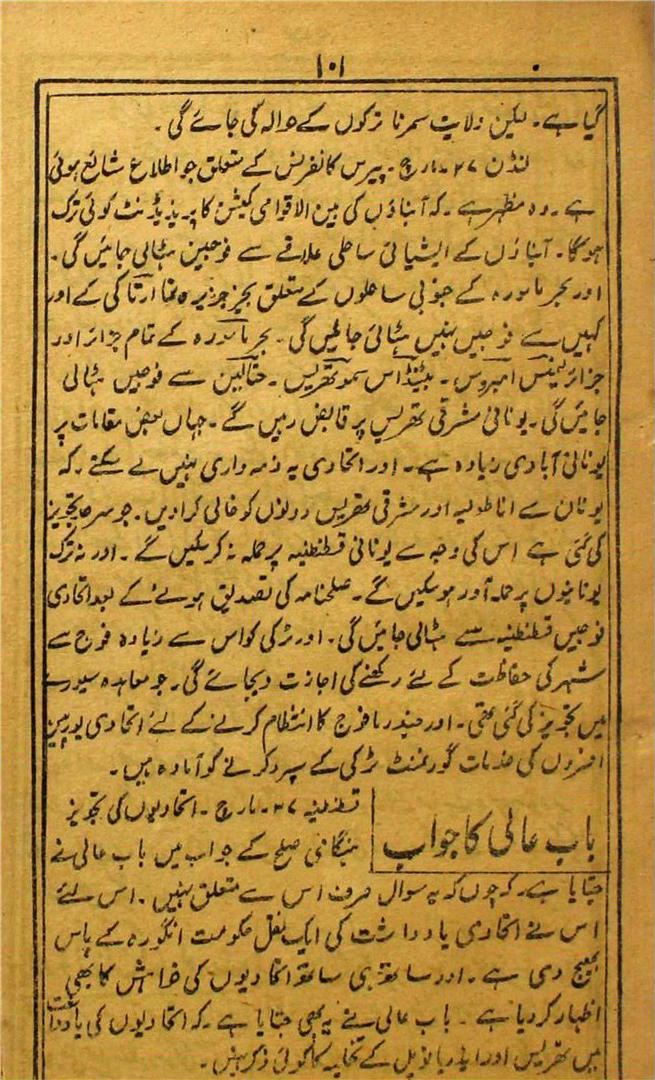 ۱۰۱
گیا ہے۔ لیکن ولایت سمرنا ترکوں کے حوالہ کی جائے گی۔
لنڈن ۲۷۔ مارچ۔ پیرس کانفرنس کے متعلق جو اطلاع شائع ہوئی
ہے۔ وہ مظہر ہے۔ کہ آبناؤں کی بین الاقوامی کمیشن کا پریذیڈنٹ کوئی ترک
ہوگا۔ آبناؤں کے ایشیائی ساحلی علاقے سے فوجیں ہٹالی جائیں گی۔
اور بحر مامورہ کے جنوبی ساحلوں کے متعلق بجز جزیرہ نما ارتاکی کے اور
کہیں سے فوجیں نہیں ہٹائی جائیں گی۔ بحر مامورہ کے تمام جزائر اور
جزائر لیمنس امبروس۔ ٹینیڈاس سموتھریس۔ متالین سے فوجیں ہٹالی
جائیں گی۔ یونانی مشرقی تھریس پر قابض رہیں گے۔ جہاں بعض مقامات پر
یونانی آبادی زیادہ ہے۔ اور اتحادی یہ ذمہ واری نہیں لے سکتے۔ کہ
یونان سے اناطولیہ اور مشرقی تھریس دونوں کو خالی کرادیں۔ جو سرحد تجویز
کی گئی ہے اس کی وجہ سے یونانی قسطنطنیہ پر حملہ نہ کرسکیں گے۔ اور نہ ترک
یونانیوں پر حملہ آور ہوسکیں گے۔ صلحنامہ کی تصدیق ہونے کے بعد اتحادی
فوجیں قسطنطنیہ سے ہٹالی جائیں گی۔ اور ٹرکی کو اس سے زیادہ فوج سے
شہر کی حفاظت کے لئے رکھنے کی اجازت دیجائے گی۔ جو معاہدہ سیورے
میں تجویز کی گئی تھی۔ اور جندرما فوج کا انتظام کرنے کے لئے اتحادی یورپین
افسروں کی خدمات گورنمنٹ ٹرکی کے سپرد کرنے کو آمادہ ہیں۔
باب عالی کا جواب
قسطنطنیہ ۲۷۔ مارچ۔ اتحادیوں کی تجویز
ہنگامی صلح کے جواب میں باب عالی نے
جتایا ہے۔ کہ چوں کہ یہ سوال صرف اس سے متعلق نہیں۔ اس لئے
اس نے اتحادی یادداشت کی ایک نقل حکومت انگورہ کے پاس
بھیج دی ہے۔ اور ساتھ ہی ساتھ اتحادیوں کی خواہش کا بھی
اظہار کردیا ہے۔ باب عالی نے یہ بھی جتایا ہے۔ کہ اتحادیوں کی یادداشت
میں تھریس اور ایڈریانوپل کے تخلیہ کا کوئی ذکر نہیں۔